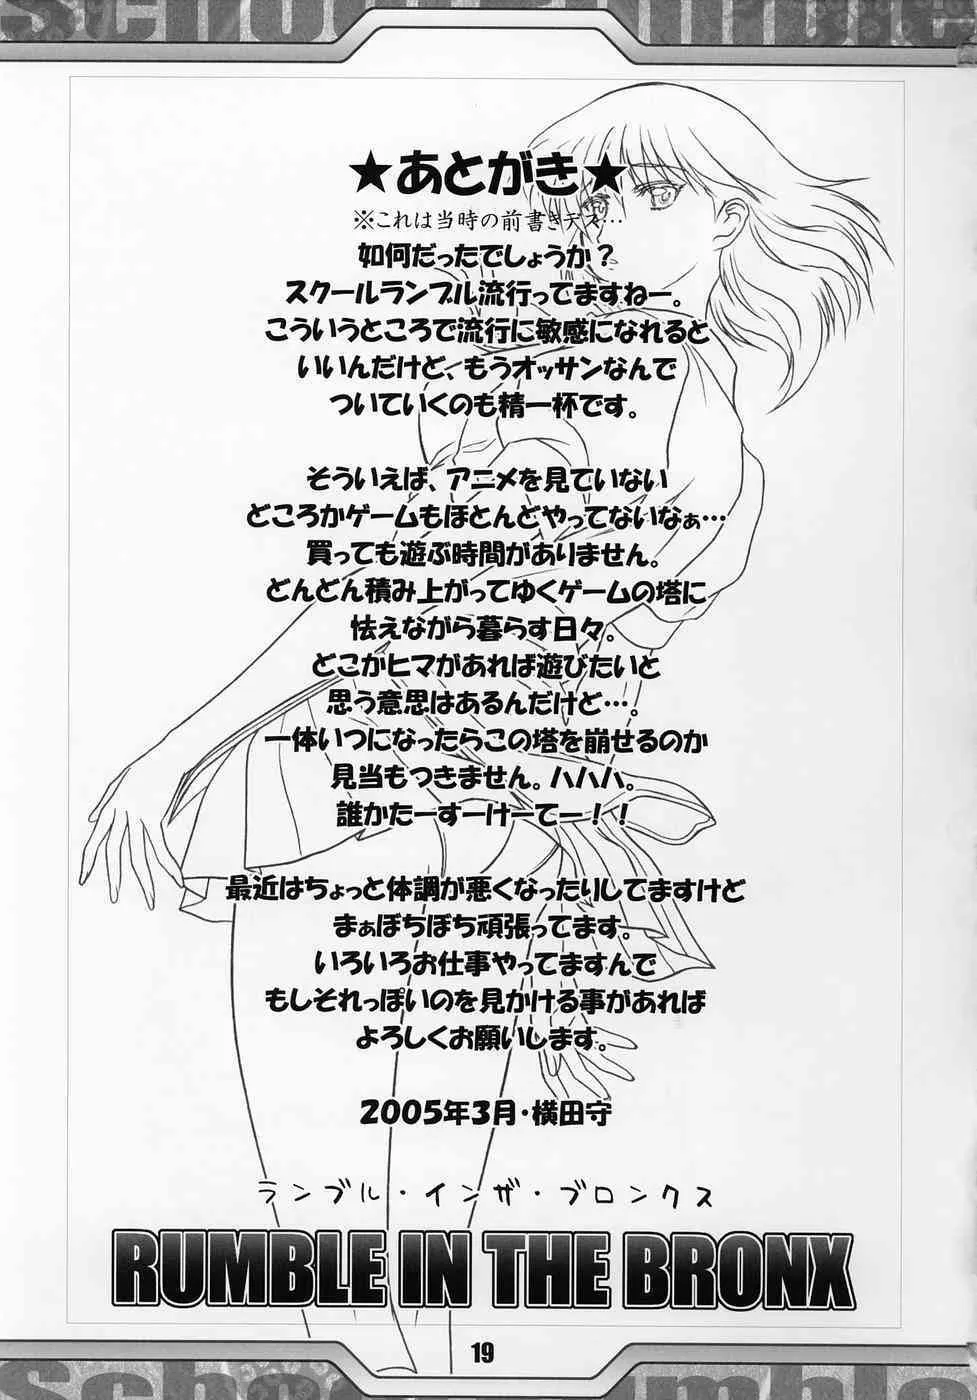 School Rumble
★あとがき★
※これは当時の前書きデス…
如何だったでしょうか？
スクールランブル流行ってますねー。
こういうところで流行に敏感になれると
いいんだけど、もうオッサンなんで
ついていくのも精一杯です。
そういえば、アニメを見ていない
どころかゲームもほとんどやってないなぁ…
買っても遊ぶ時間がありません。
どんどん積み上がってゆくゲームの塔に
怯えながら暮らす日々。
どこかヒマがあれば遊びたいと
思う意思はあるんだけど…。
一体いつになったらこの塔を崩せるのか
見当もつきません。ハハハ。
誰かたーすーけーてー！！
最近はちょっと体調が悪くなったりしてますけど
まぁぼちぼち頑張ってます。
いろいろお仕事やってますんで
もしそれっぽいのを見かける事があれば
よろしくお願いします。
2005年3月・横田守
ランブル・インザ・ブロンクス
RUMBLE IN THE BRONX
19
School Rumble